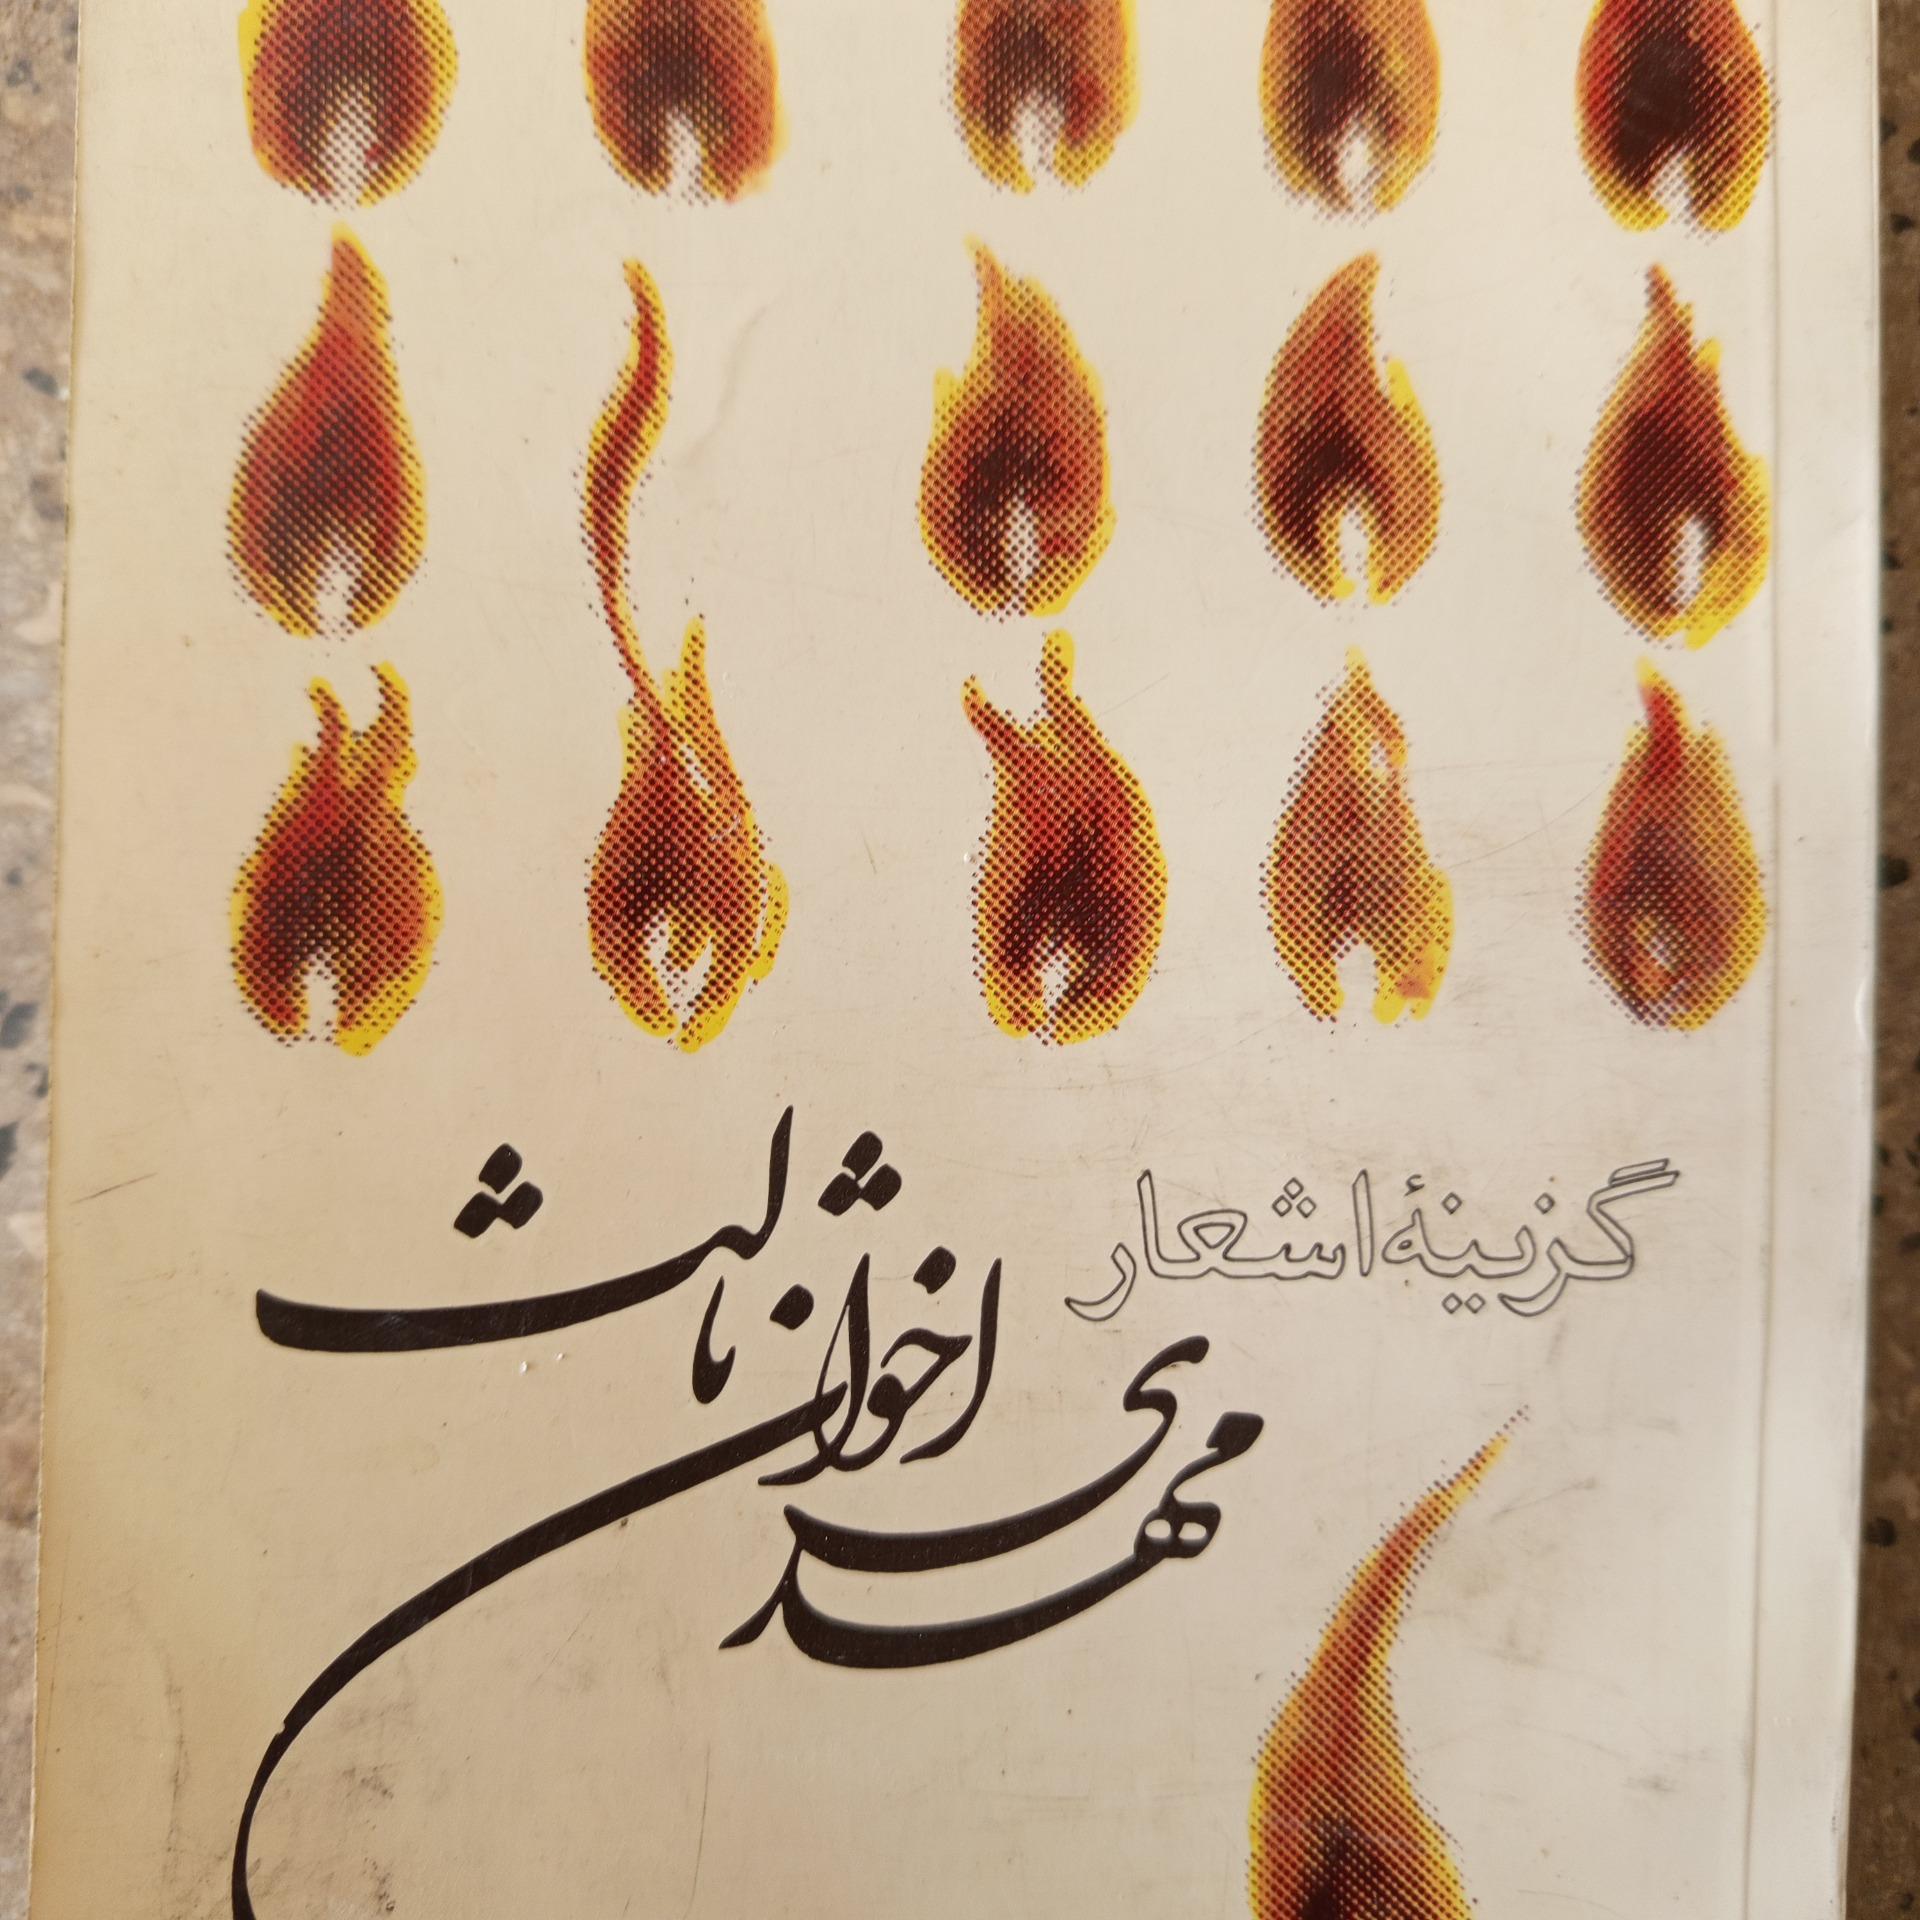 گزینهٔ اشعار
مهدی اخوان ثالث